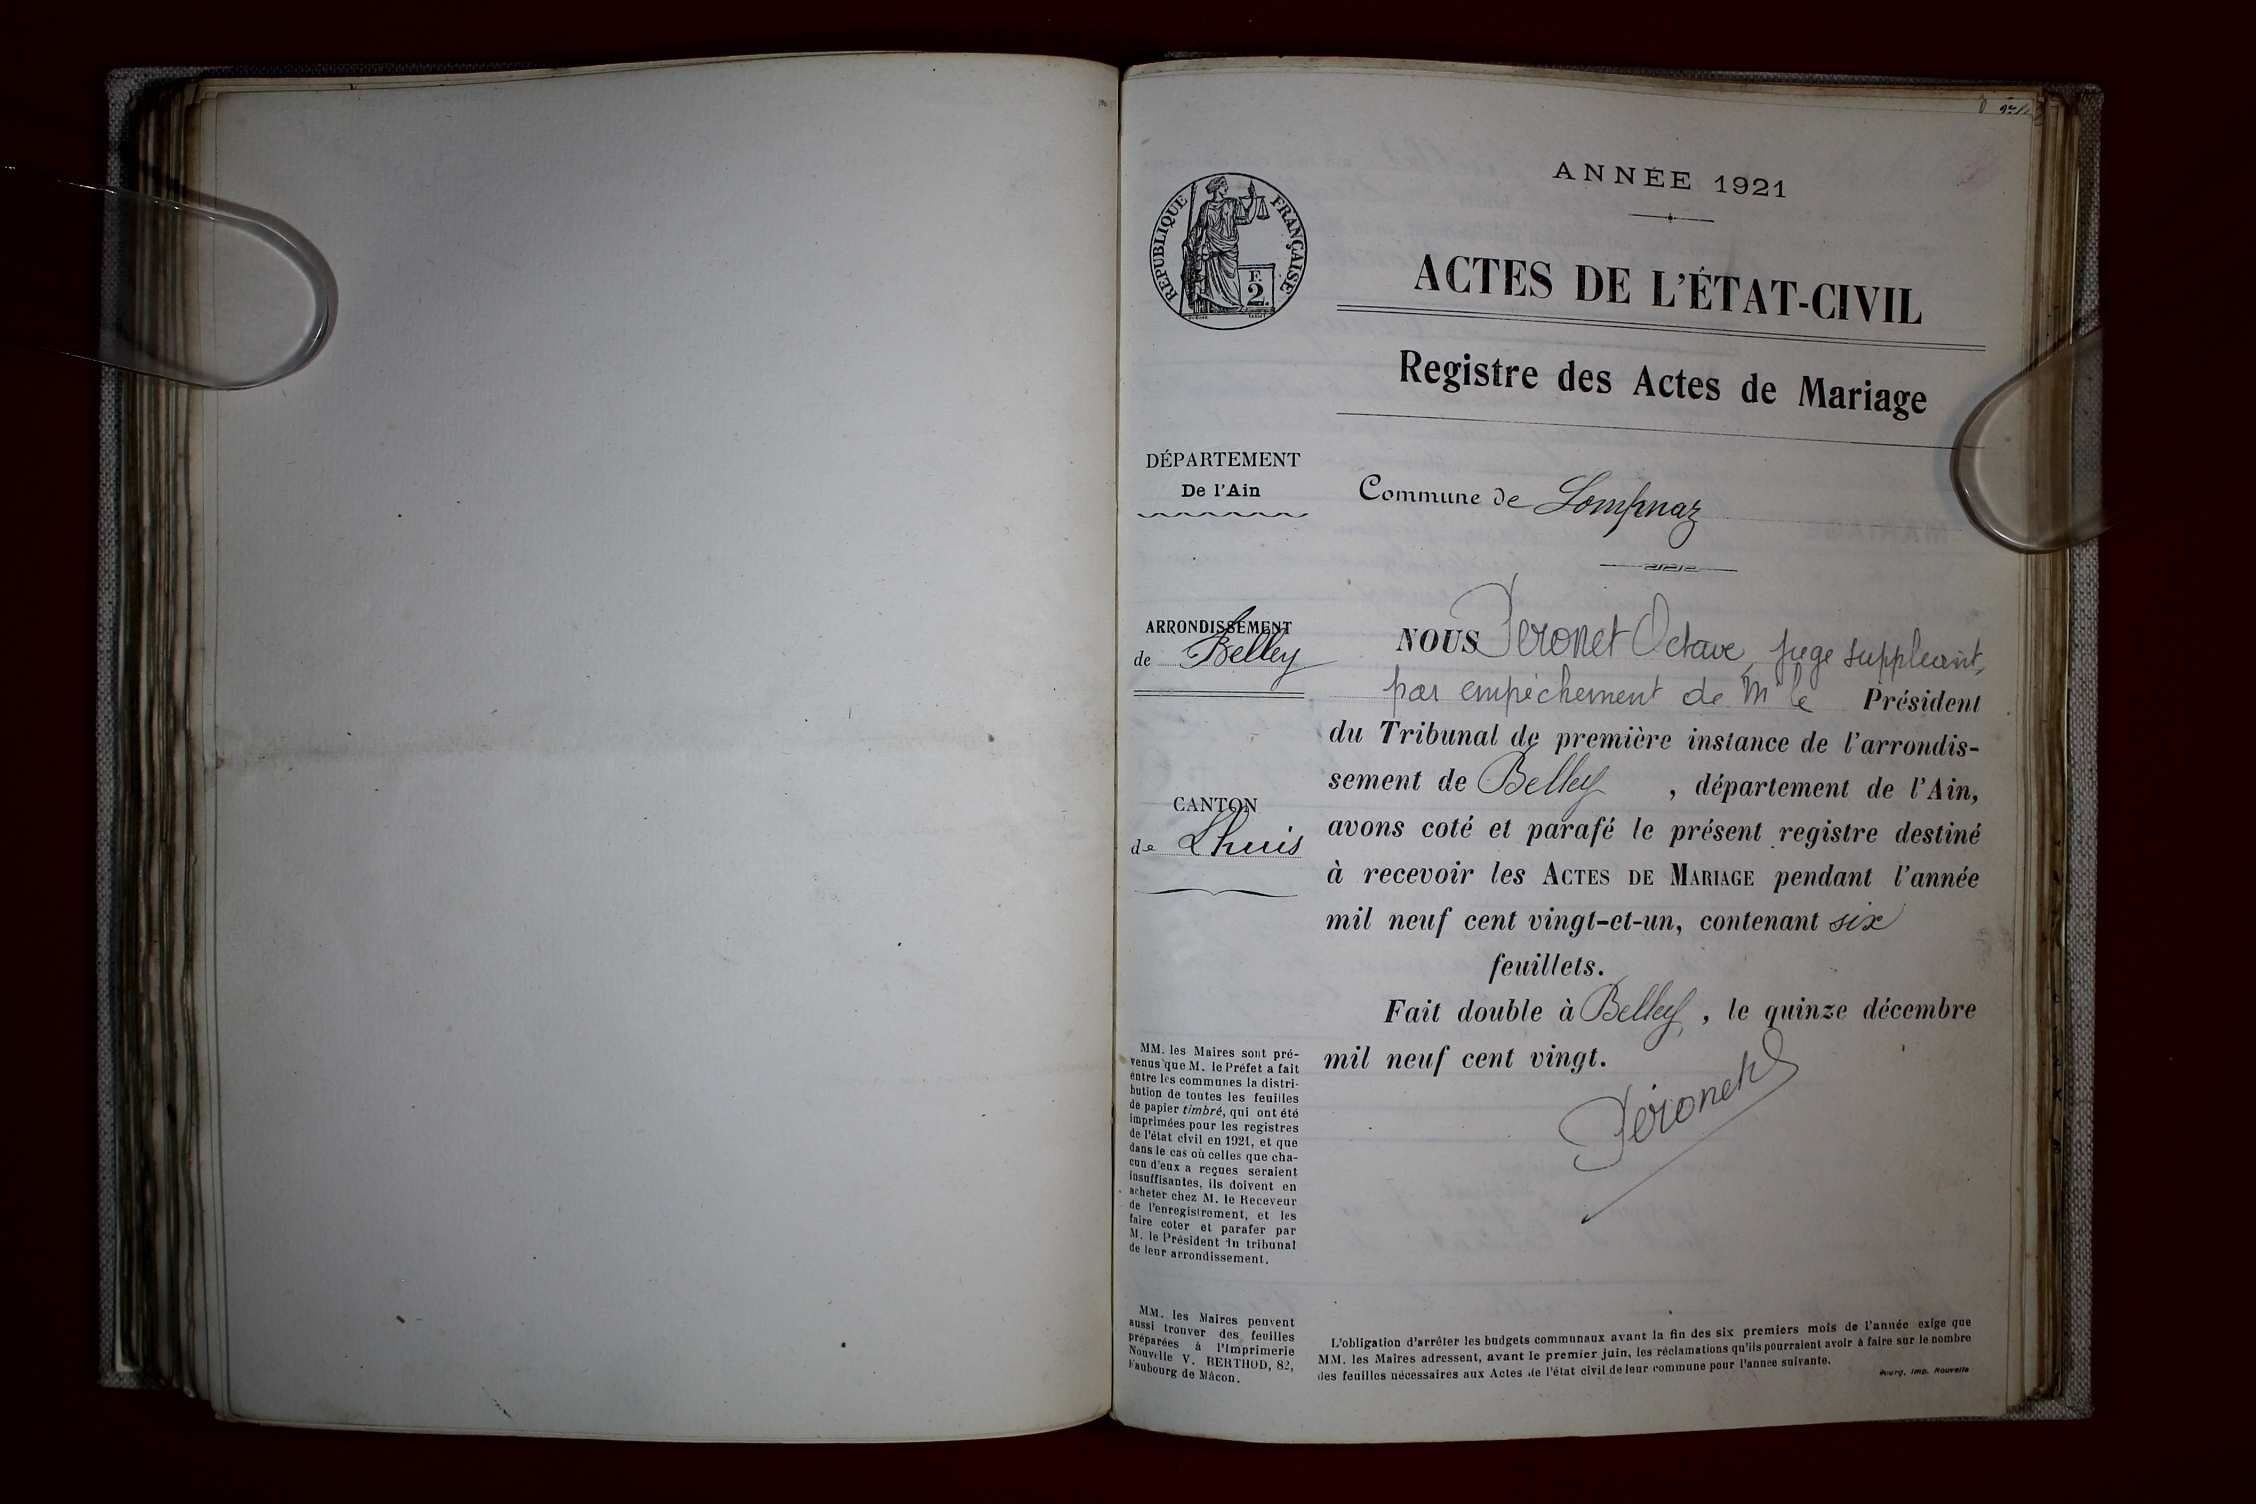 ANNÉE 1921
RÉPUBLIQUE FRANÇAISE
F.
2.
ACTES DE L'ÉTAT-CIVIL
Registre des Actes de Mariage
DÉPARTEMENT
De l'Ain
Commune de Lompnaz
ARRONDISSEMENT
de Belley
CANTON
de Lhuis
NOUS Péronet Octave, juge suppléant,
par empêchement de Mr le Président
du Tribunal de première instance de l'arrondis-
sement de Belley, département de l'Ain,
avons coté et parafé le présent registre destiné
à recevoir les ACTES DE MARIAGE pendant l'année
mil neuf cent vingt-et-un, contenant six
feuillets.
Fait double à Belley, le quinze décembre
mil neuf cent vingt.
Péronet
MM. les Maires sont pré-
venus que M. le Préfet a fait
entre les communes la distri-
bution de toutes les feuilles
de papier timbré, qui ont été
imprimées pour les registres
de l'état civil en 1921, et que
dans le cas où celles que cha-
cun d'eux a reçues seraient
insuffisantes, ils doivent en
acheter chez M. le Receveur
de l'enregistrement, et les
faire coter et parafer par
M. le Président du tribunal
de leur arrondissement.
MM. les Maires peuvent
aussi trouver des feuilles
préparées à l'Imprimerie
Nouvelle V. BERTHOD, 82,
Faubourg de Mâcon.
L'obligation d'arrêter les budgets communaux avant la fin des six premiers mois de l'année exige que
MM. les Maires adressent, avant le premier juin, les réclamations qu'ils pourraient avoir à faire sur le nombre
des feuilles nécessaires aux Actes de l'état civil de leur commune pour l'année suivante.
Bourg, Imp. Nouvelle